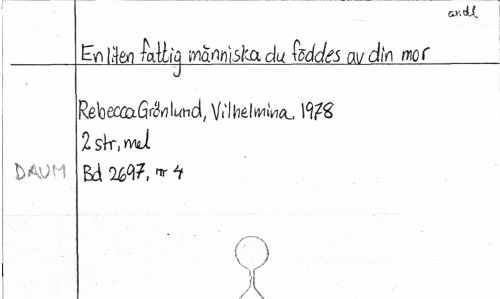 andl
En liten fattig människa du föddes av din mor
Rebecca Grönlund, Vilhelmina. 1978
2 str, mel
DAUM Bd 2697, nr 4